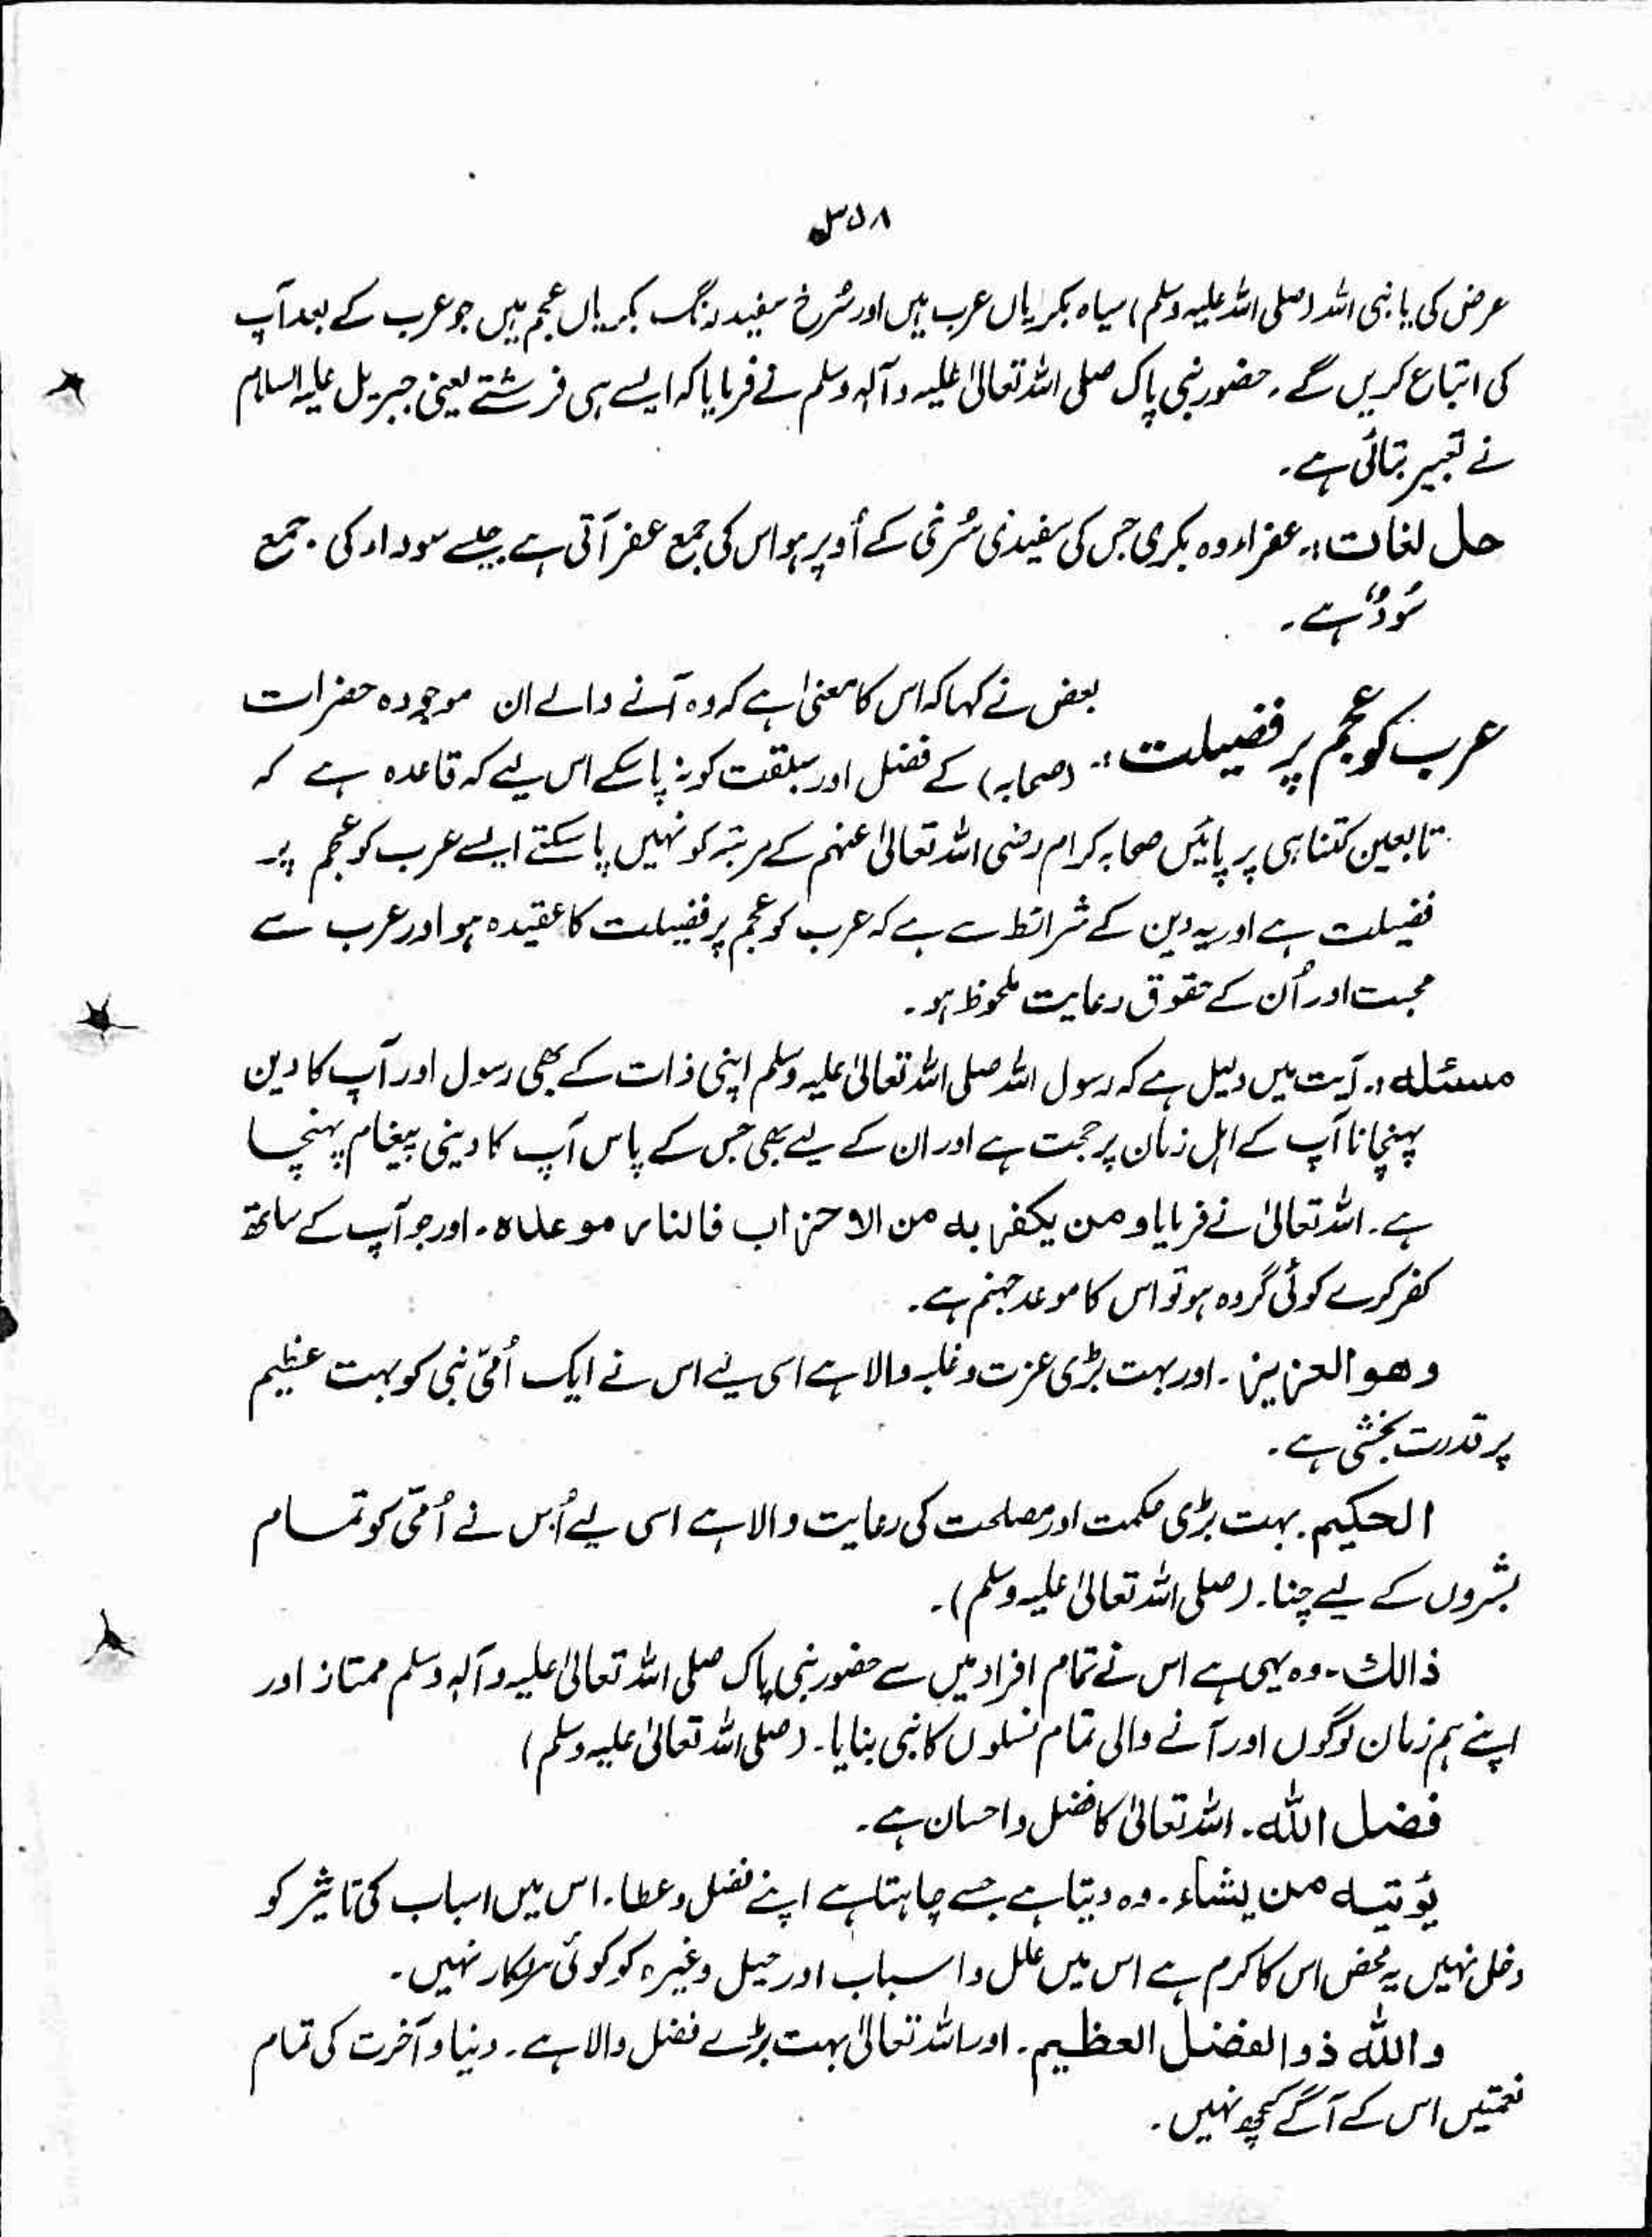 ۳۵۸
عرض کی یا نبی اللہ (صلی اللہ علیہ وسلم) سیاہ بکریاں عرب ہیں اور سُرخ سفید رنگ بکریاں عجم ہیں جو عرب کے بعد آپ
کی اتباع کریں گے۔ حضور نبی پاک صلی اللہ تعالیٰ علیہ وآلہٖ وسلم نے فرمایا کہ ایسے ہی فرشتے یعنی جبریل علیہ السلام
نے تعبیر بتائی ہے۔
حل لغات:۔ عفراء وہ بکری جس کی سفیدی سُرخی کے اُوپر ہو اس کی جمع عفر آتی ہے جیسے سوداء کی۔ جمع
سُودٌ ہے۔
عرب کو عجم پر فضیلت:۔ بعض نے کہا کہ اس کا معنیٰ ہے کہ وہ آنے والے ان موجودہ حضرات
(صحابہ) کے فضل اور سبقت کو نہ پا سکے اس لیے کہ قاعدہ ہے کہ
تابعین کتنا ہی پر پائیں صحابہ کرام رضی اللہ تعالیٰ عنہم کے مرتبہ کو نہیں پا سکتے ایسے عرب کو عجم پر
فضیلت ہے اور یہ دین کے شرائط سے ہے کہ عرب کو عجم پر فضیلت کا عقیدہ ہو اور عرب سے
محبت اور اُن کے حقوق رعایت ملحوظ ہو۔
مسئلہ:۔ آیت میں دلیل ہے کہ رسول اللہ صلی اللہ تعالیٰ علیہ وسلم اپنی ذات کے بھی رسول اور آپ کا دین
پہنچانا آپ کے اہل زمان پر حجت ہے اور ان کے لیے بھی جس کے پاس آپ کا دینی پیغام پہنچا
ہے۔ اللہ تعالیٰ نے فرمایا ومن یکفر بہ من الاحزاب فالنار موعدہ۔ اور جو آپ کے ساتھ
کفر کرے کوئی گروہ ہو تو اس کا موعد جہنم ہے۔
وھو العزیز۔ اور بہت بڑی عزت و غلبہ والا ہے اسی لیے اس نے ایک اُمّی نبی کو بہت عظیم
پر قدرت بخشی ہے۔
الحکیم۔ بہت بڑی حکمت اور مصلحت کی رعایت والا ہے اسی لیے اُس نے اُمّی کو تمام
بشروں کے لیے چنا۔ (صلی اللہ تعالیٰ علیہ وسلم)۔
ذالک۔ وہ یہی ہے اس نے تمام افراد میں سے حضور نبی پاک صلی اللہ تعالیٰ علیہ وآلہٖ وسلم ممتاز اور
اپنے ہم زمان لوگوں اور آنے والی تمام نسلوں کا نبی بنایا۔ (صلی اللہ تعالیٰ علیہ وسلم)
فضل اللہ۔ اللہ تعالیٰ کا فضل و احسان ہے۔
یؤتیہ من یشاء۔ وہ دیتا ہے جسے چاہتا ہے اپنے فضل و عطا۔ اس میں اسباب کی تاثیر کو
دخل نہیں یہ محض اس کا کرم ہے اس میں علل و اسباب اور حیل وغیرہ کو کوئی سروکار نہیں۔
واللہ ذوالفضل العظیم۔ اور اللہ تعالیٰ بہت بڑے فضل والا ہے۔ دنیا و آخرت کی تمام
نعمتیں اس کے آگے کچھ نہیں۔